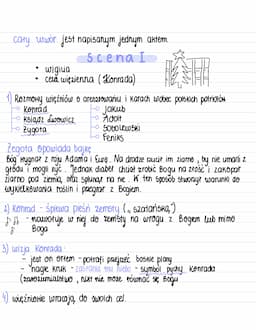 cały utwór jest napisanym jednym aktem
Scena I
• wigilia
• cela więzienna (Konrada)
1) Rozmowy więźniów o aresztowaniu i karach wobec polskich patriotów
Konrad
Jakub
Ksiądz Lwowicz
Adolf
Żegota
Sobolewski
Feniks
Żegota opowiada bajkę
Bóg wygnał z raju Adama i Ewę. Na drodze rzucił im ziarno, by nie umarli z
głodu i mogli żyć. Jednak diabeł chciał zrobić Bogu na złość i zakopał
ziarno pod ziemią, oraz splunął na nie. W ten sposób stworzył warunki do
wykiełkowania roślin i przegrał z Bogiem.
2) Konrad - śpiewa pieśń zemsty („szatańską")
- nawołuje w niej do zemsty na wrogu z Bogiem lub mimo
Boga
3) wizja Konrada
- jest on orłem - potrafi przejąć boskie plany
- nagle kruk - zasłania mu niebo - symbol pychy Konrada
(zarozumialstwo, nikt nie może równać się Bogu
4) więźniowie wracają do swoich cel.